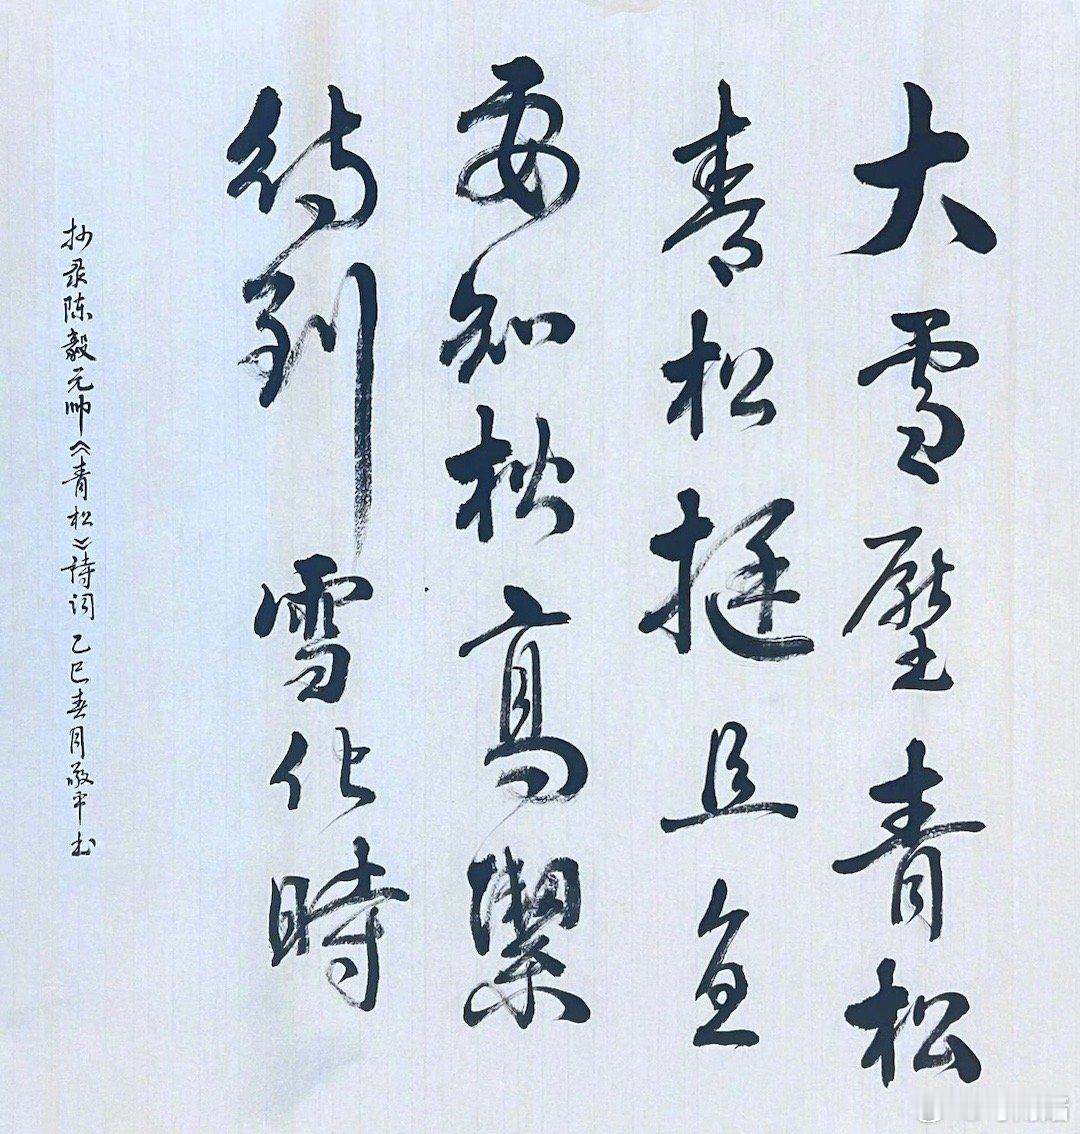 大雪壓青松
青松挺且直
要知松高潔
待到雪化時
抄录陈毅元帅《青松》詩词 乙巳春月敬平书